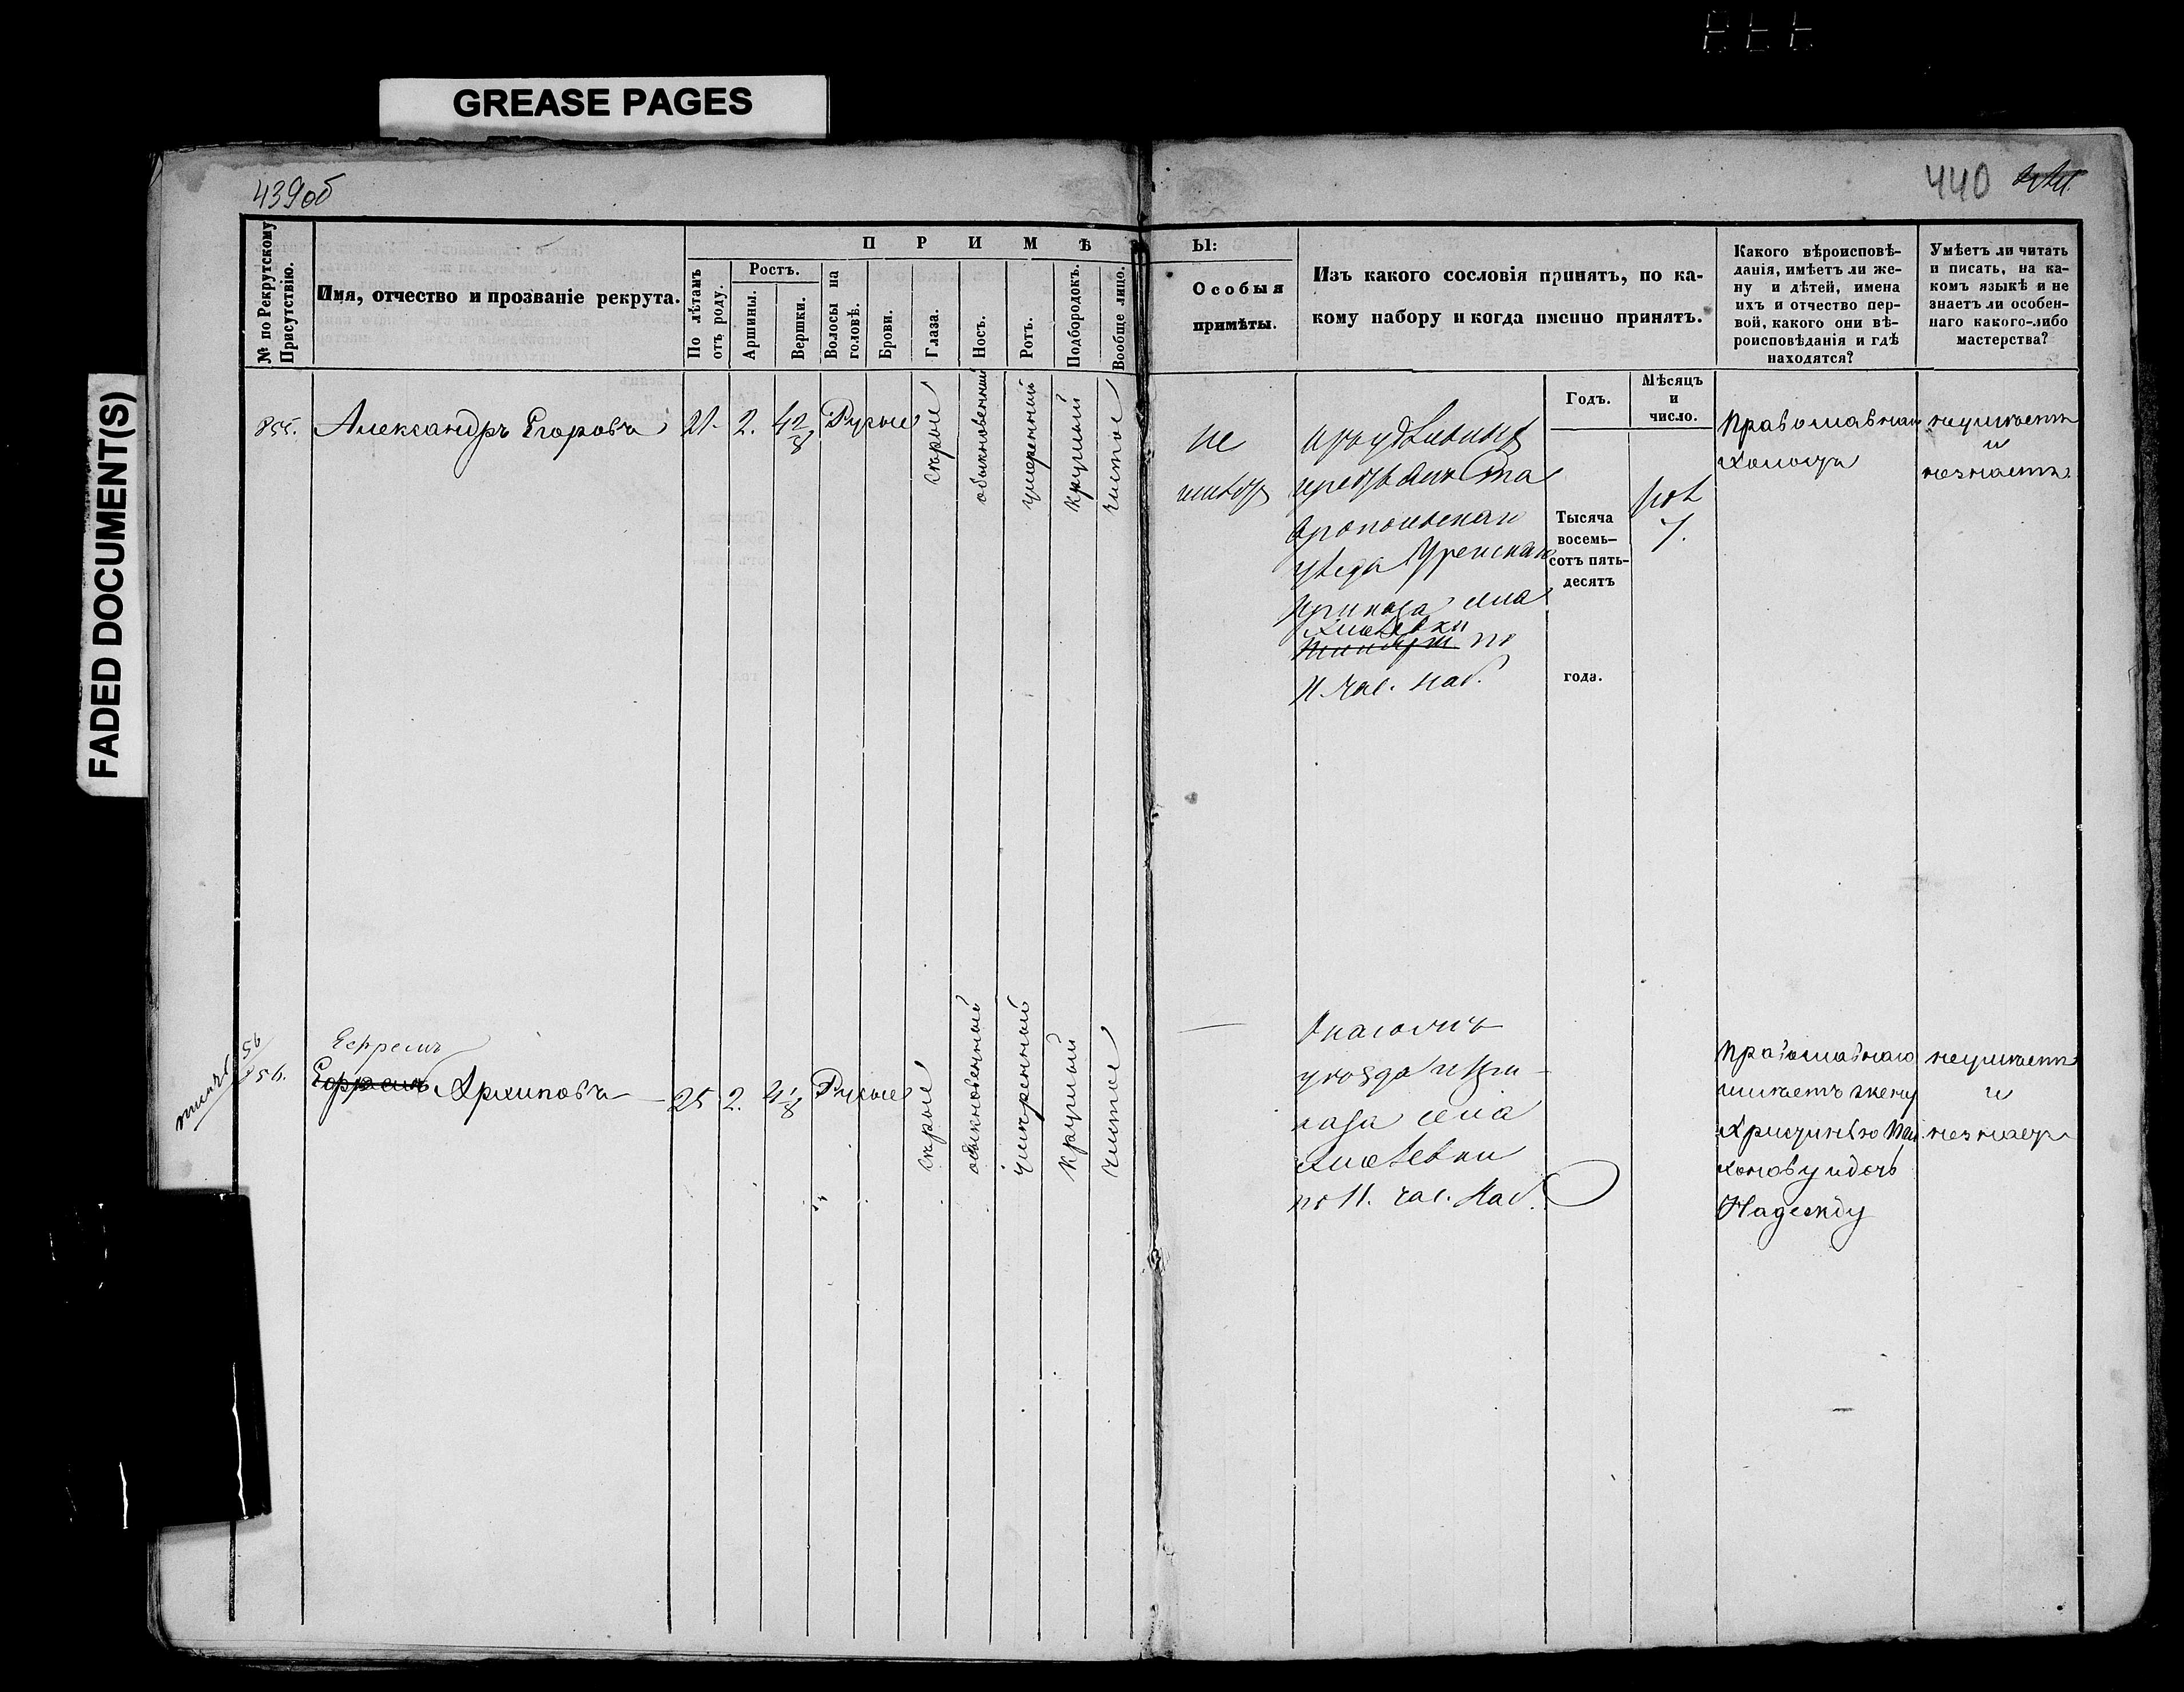 GREASE PAGES
FADED DOCUMENT(S)
439об
440
№ по Рекрутскому Присутствію.
Имя, отчество и прозваніе рекрута.
П Р И М Ѣ
По лѣтамъ отъ роду.
Ростъ.
Аршины.
Вершки.
Волосы на головѣ.
Брови.
Глаза.
Носъ.
Ротъ.
Подбородокъ.
Вообще лицо.
Ы:
Особыя
примѣты.
Изъ какого сословія принятъ, по ка-
кому набору и когда имѣнно принятъ.
Какого вѣроисповѣ-
данія, имѣетъ ли же-
ну и дѣтей, имена
ихъ и отчество пер-
вой, какого они вѣ-
роисповѣданія и гдѣ
находятся?
Умѣетъ ли читать
и писать, на ка-
комъ языкѣ и не
знаетъ ли особен-
наго какого-либо
мастерства?
Годъ.
Мѣсяцъ
и
число.
855. Александръ Егоровъ 21. 2. 4 2/8 Русые
сѣрые
обыкновенный
умѣренный
круглый
чистое
не
имѣетъ
уѣзда Уренскаго
Приказа села
по
II. час. наб.
Тысяча
восемь-
сотъ пять-
десятъ
года.
7.
Православнаго
холостъ
неумѣетъ
и
незнаетъ.
56
856.
Ефремъ
Архиповъ 25 2. 4 1/8 Русые
сѣрые
обыкновенный
умѣренный
круглый
чистое
уѣзда и При-
каза села
по II. час. Наб.
Православнаго
имѣетъ жену
дочь
Надежду
неумѣетъ
и
незнаетъ